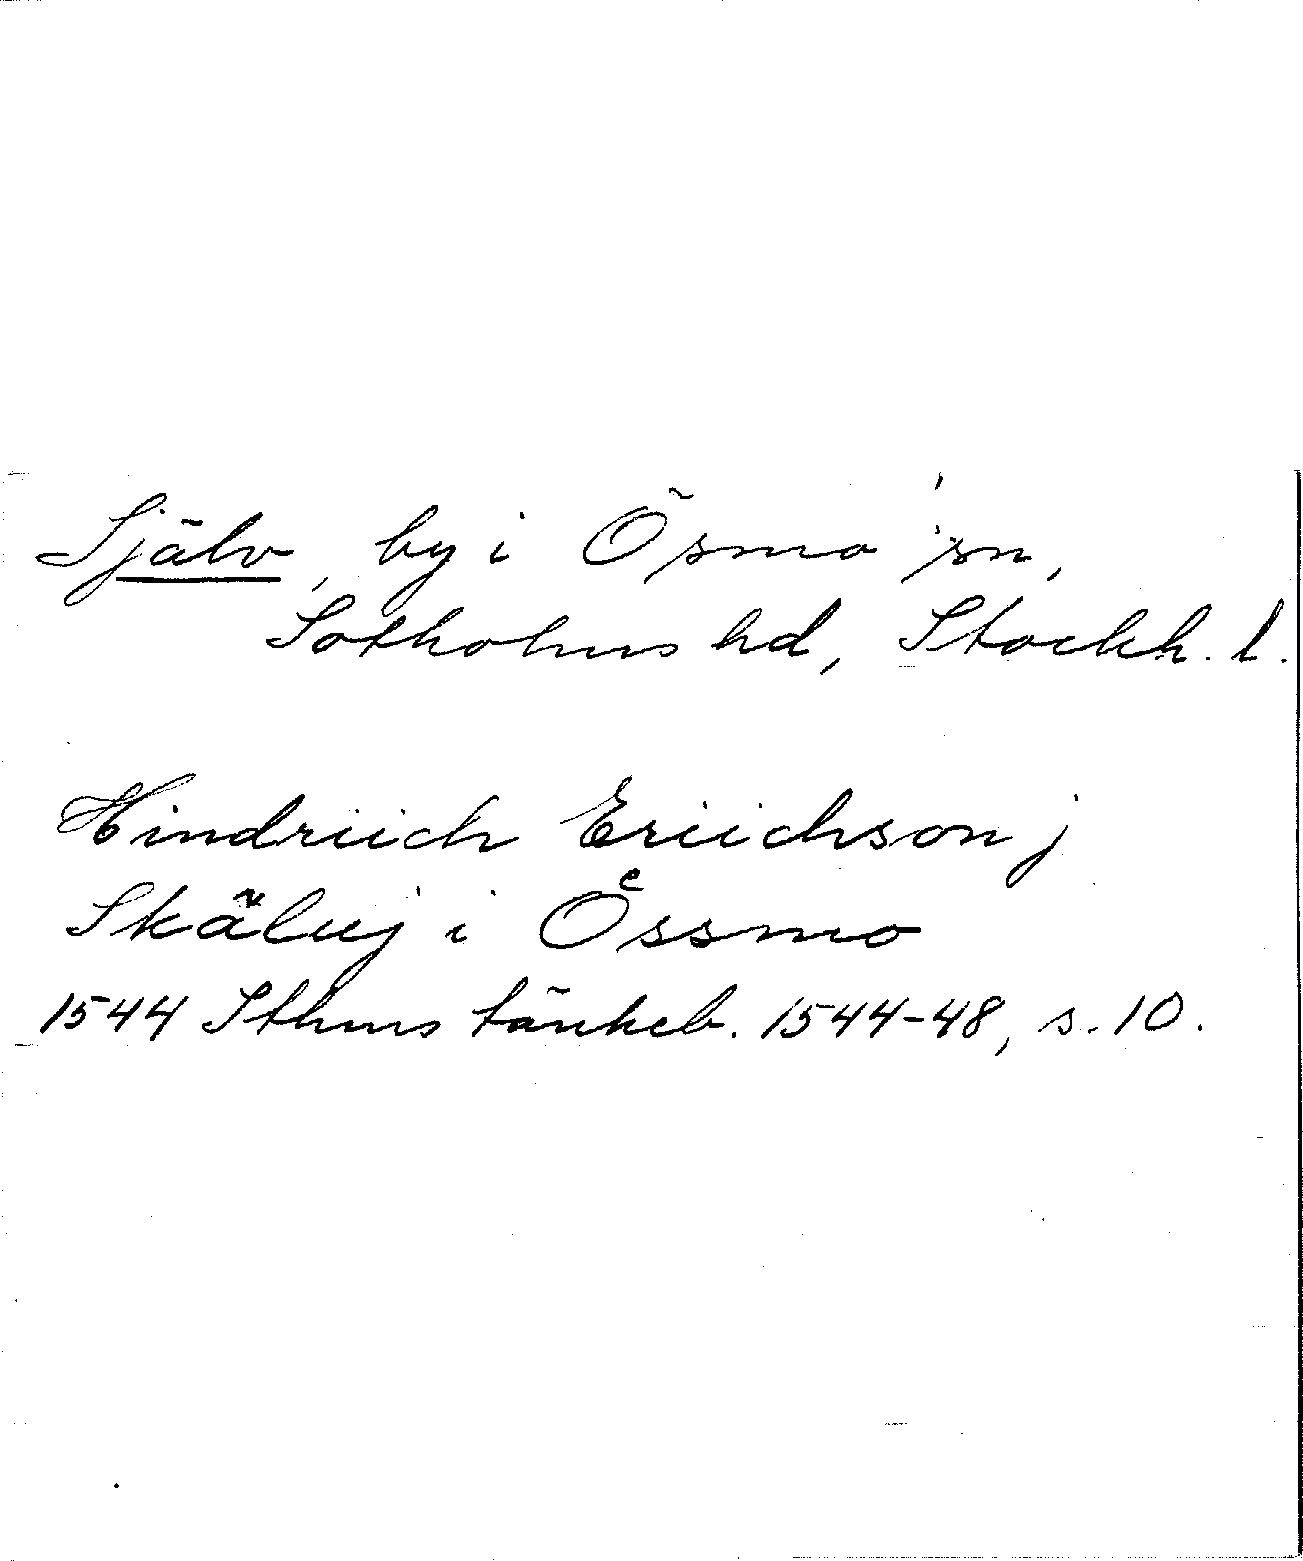 Själv, by i Ösmo sn,
Sotholms hd, Stockh. l.
Hindriich Eriichson j
Skäluj i Oͤssmo
1544 Sthms tänkeb. 1544-48, s. 10.